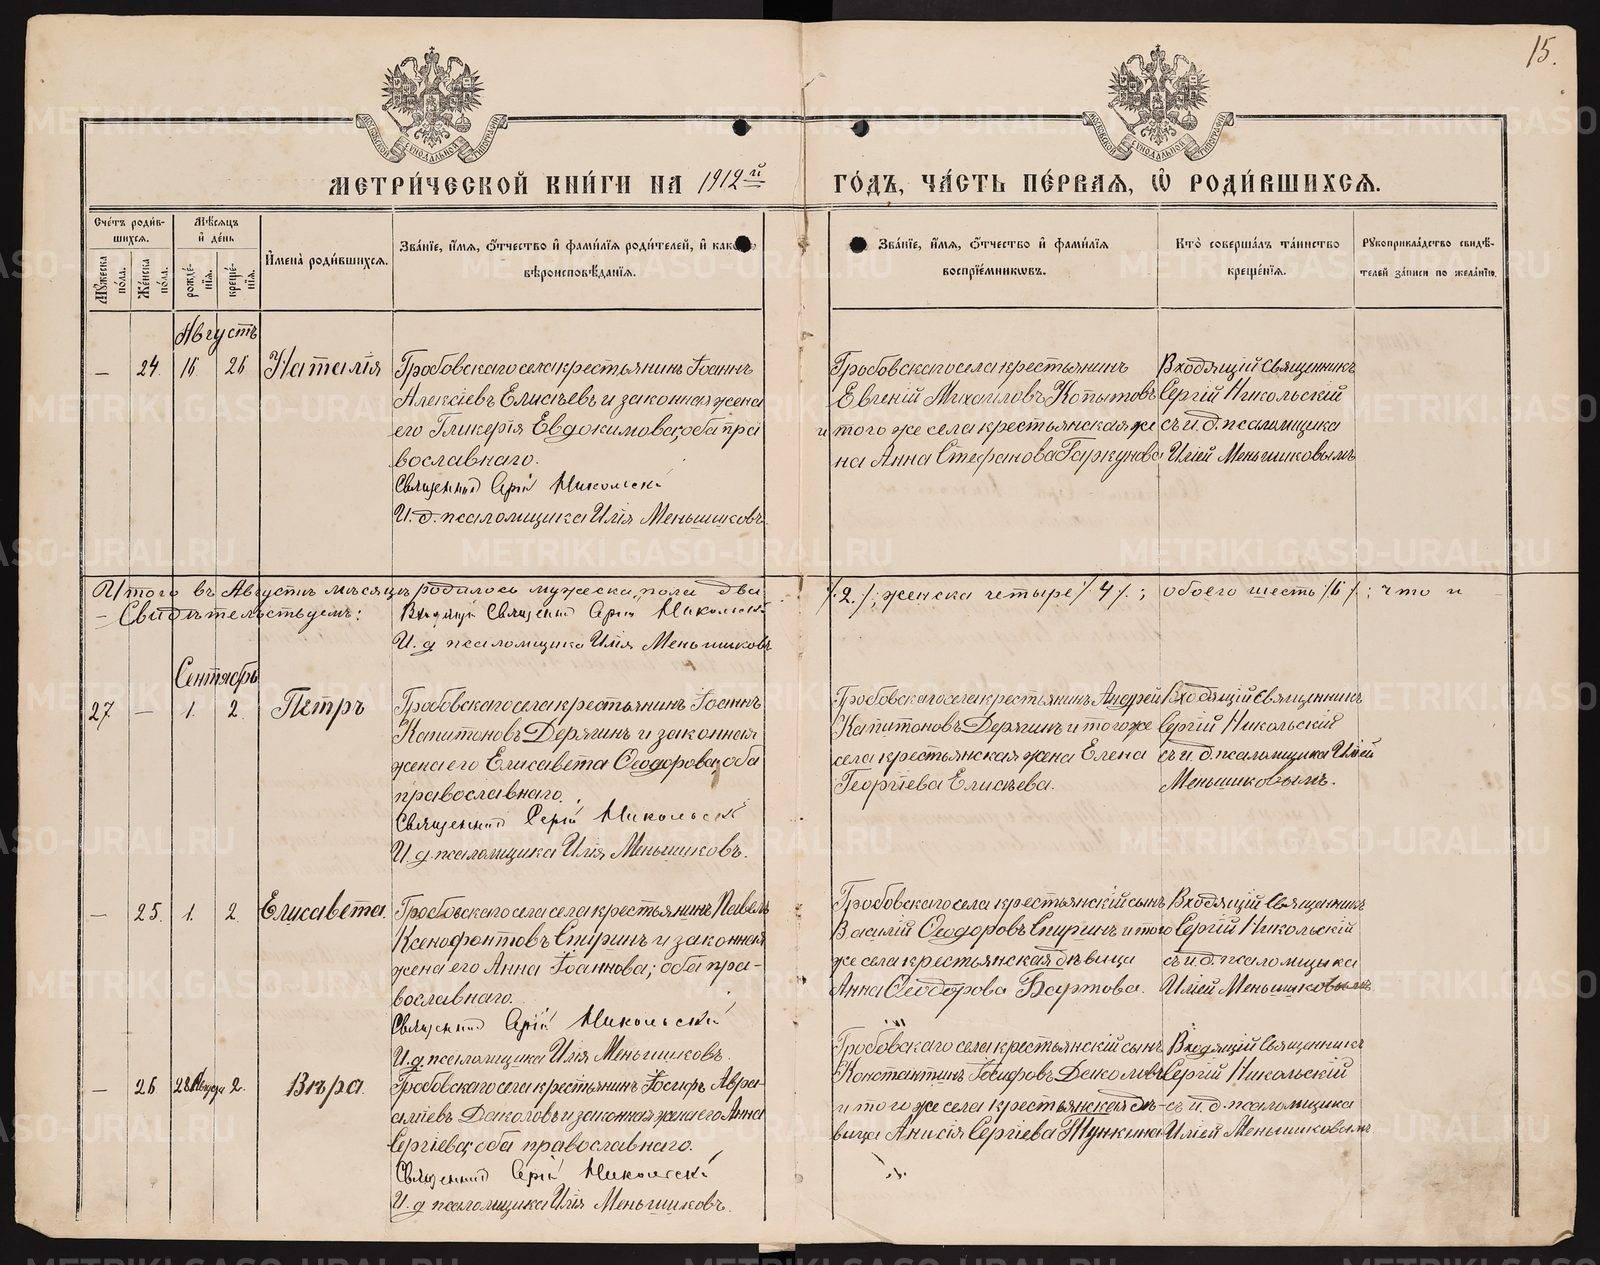 15.
МОСКОВСКОЙ СѴНОДАЛЬНОЙ ТИПОГРАФІИ
МОСКОВСКОЙ СѴНОДАЛЬНОЙ ТИПОГРАФІИ
МЕТРИ́ЧЕСКОЙ КНИ́ГИ НА 1912й
ГО́ДЪ, ЧА́СТЬ ПЕ́РВАЯ, Ѽ РОДИ́ВШИХСЯ.
Сче́тъ роди́в-
шихся.
Мѣ́сяцъ
и҆ де́нь
Мꙋ́жеска по́ла.
Же́нска по́ла.
рожде́-
нїя.
креще́-
нїя.
И҆мена̀ роди́вшихся.
Зва́нїе, и҆́мя, ѻ҆́тчество и҆ фами́лїя роди́телей, и҆ како́гѡ
вѣроисповѣ́данїя.
Зва́нїе, и҆́мя, ѻ҆́тчество и҆ фами́лїя
воспрїе́мникѡвъ.
Кто̀ соверша́лъ та́инство
креще́нїя.
Рꙋкоприкла́дство свидѣ́-
телей за́писи по жела́нїю.
Августъ
— 24. 16. 26 Наталія
Гробовскаго села крестьянинъ Іоаннъ
Алексіевъ Елисѣевъ и законная жена
его Гликерія Евдокимова; оба пра
вославнаго.
Священникъ Сергій Никольскій
И. д. псаломщика Илія Меньшиковъ.
Гробовскаго села крестьянинъ
Евгеній Михаиловъ Копытовъ
и того же села крестьянская же
на Анна Стефанова Гаркунова
Входящій Священникъ
Сергій Никольскій
съ и. д. псаломщика
Иліей Меньшиковымъ
Итого въ Августѣ мѣсяцѣ родилось мужеска пола два /2./; женска четыре /4/.; обоего шесть /6/.; что и
— Свидѣтельствуемъ: Входящій Священникъ Сергій Никольскій
И. д псаломщика Илія Меньшиковъ
Сентябрь
27 — 1. 2. Петръ
Гробовскаго села крестьянинъ Іоаннъ
Капитоновъ Дерягинъ и законная
жена его Елисавета Ѳеодорова; оба
православнаго.
Священникъ Сергій Никольскій
И. д. псаломщика Илія Меньшиковъ.
Гробовскаго села крестьянинъ Андрей
Капитоновъ Дерягинъ и того же
села крестьянская жена Елена
Георгіева Елисѣева.
Входящій Священникъ
Сергій Никольскій
съ и. д. псаломщика Иліей
Меньшиковымъ.
— 25. 1. 2. Елисавета.
Гробовскаго села села крестьянинъ Павелъ
Ксенофонтовъ Спиринъ и законная
жена его Анна Іоаннова; оба пра-
вославнаго.
Священникъ Сергій Никольскій
И. д. псаломщика Илія Меньшиковъ.
Гробовскаго села крестьянскій сынъ
Василій Ѳеодоровъ Спиринъ и того
же села крестьянская дѣвица
Анна Ѳеодорова Бартова.
Входящій Священникъ
Сергій Никольскій
съ и. д. псаломщика
Иліей Меньшиковымъ
— 26 28 Августа 2. Вѣра.
Гробовскаго села крестьянинъ Іосифъ Авра-
аміевъ Доколовъ и законная жена его Анна
Сергіева; оба православнаго.
Священникъ Сергій Никольскій
И. д псаломщика Илія Меньшиковъ.
Гробовскаго села крестьянскій сынъ
Константинъ Іосифовъ Доколовъ
и того же села крестьянская дѣ-
вица Анисія Сергіева Тункина
Входящій Священникъ
Сергій Никольскій
съ и. д. псаломщика
Иліей Меньшиковымъ
METRIKI.GASO-URAL.RU